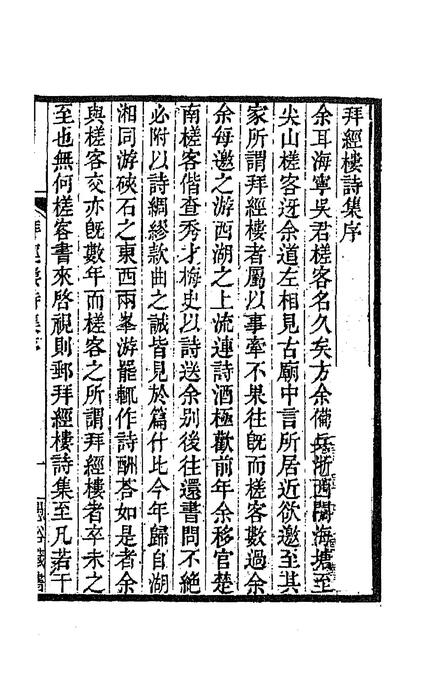 拜經樓詩集序
余耳海寧吳君槎客名久矣方余備兵浙西閱海塘至
尖山槎客迓余道左相見古廟中言所居近欲邀至其
家所謂拜經樓者屬以事牽不果往旣而槎客數過余
余每邀之游西湖之上流連詩酒極歡前年余移官楚
南槎客偕查秀才梅史以詩送余别後往還書問不絶
必附以詩綢繆款曲之誠皆見於篇什比今年歸自湖
湘同游硤石之東西兩峯游罷輒作詩酬荅如是者余
與槎客交亦旣數年而槎客之所謂拜經樓者卒未之
至也無何槎客書來啓視則郵拜經樓詩集至凡若干
拜經樓詩集序
一
愚谷叢書